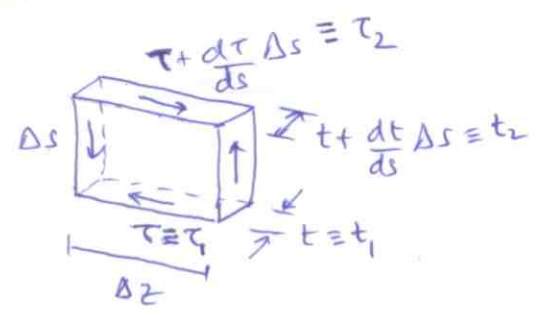 τ + dτ/ds Δs ≡ τ₂
Δs
t + dt/ds Δs ≡ t₂
τ ≡ τ₁
t ≡ t₁
Δz